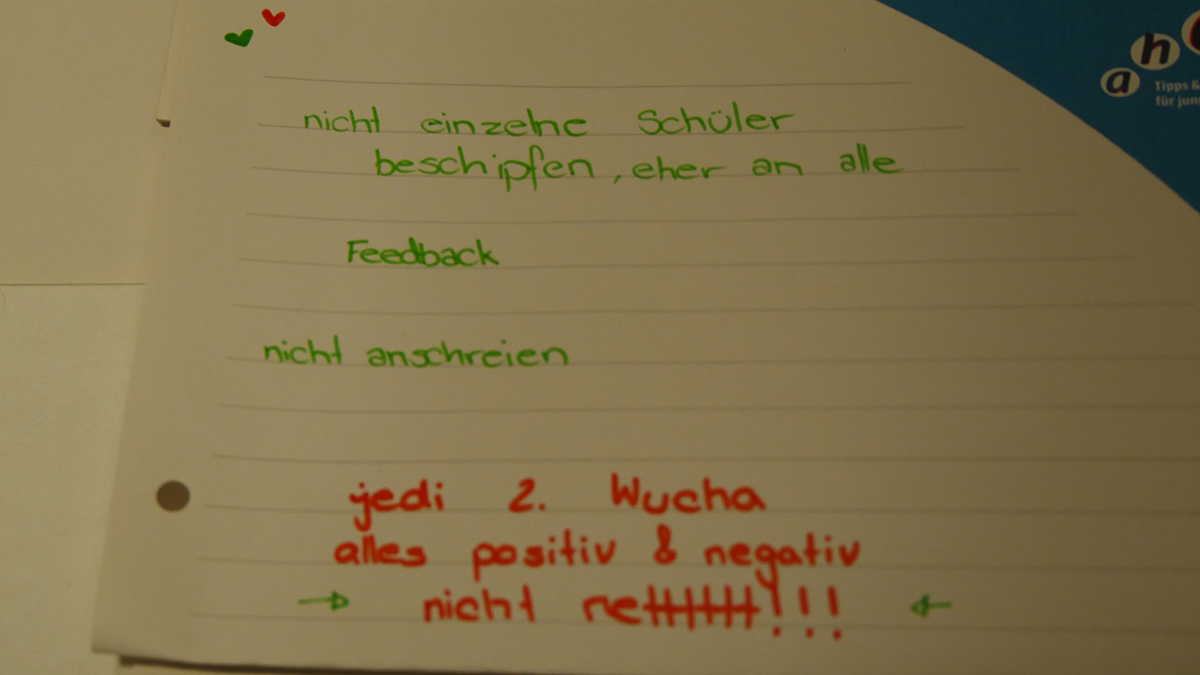 a h
Tipps &
für jun
nicht einzelne Schüler
beschipfen, eher an alle
Feedback
nicht anschreien
jedi 2. Wucha
alles positiv & negativ
→ nicht nettttttt!!! ←